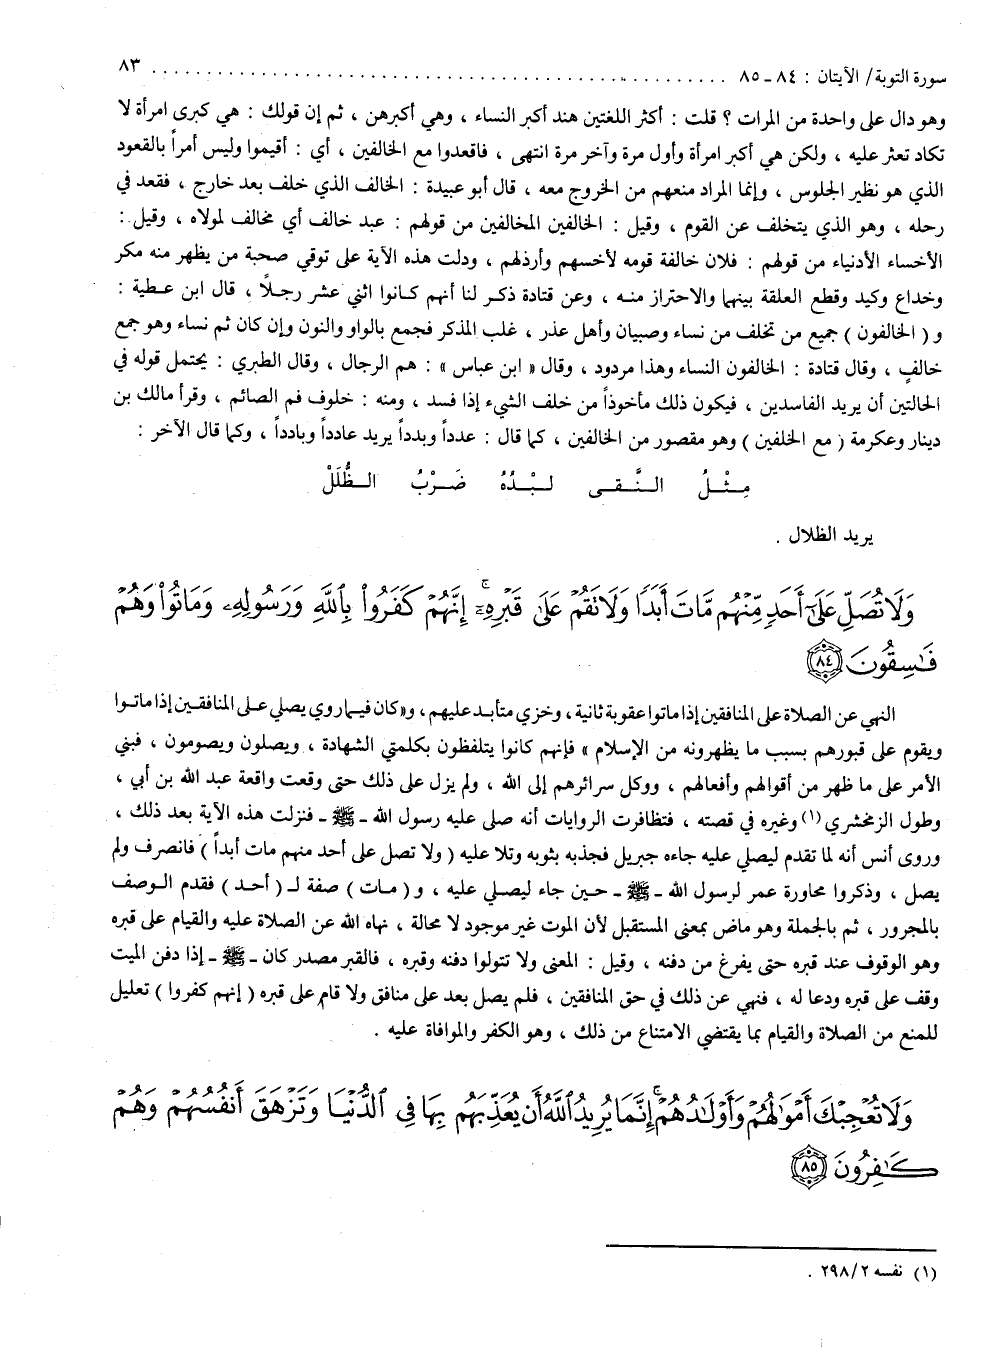 سورة التوبة/ الآيتان : ٨٤ ـ ٨٥ ........................................................ ٨٣
وهو دال على واحدة من المرات ؟ قلت : أكثر اللغتين هند أكبر النساء ، وهي أكبرهن ، ثم إن قولك : هي كبرى امرأة لا
تكاد تعثر عليه ، ولكن هي أكبر امرأة وأول مرة وآخر مرة انتهى ، فاقعدوا مع الخالفين ، أي : أقيموا وليس أمراً بالقعود
الذي هو نظير الجلوس ، وإنما المراد منعهم من الخروج معه ، قال أبو عبيدة : الخالف الذي خلف بعد خارج ، فقعد في
رحله ، وهو الذي يتخلف عن القوم ، وقيل : الخالفين المخالفين من قولهم : عبد خالف أي مخالف لمولاه ، وقيل :
الأخساء الأدنياء من قولهم : فلان خالفة قومه لأخسهم وأرذلهم ، ودلت هذه الآية على توقي صحبة من يظهر منه مكر
وخداع وكيد وقطع العلقة بينهما والاحتراز منه ، وعن قتادة ذكر لنا أنهم كانوا اثني عشر رجلاً ، قال ابن عطية :
و ( الخالفون ) جميع من تخلف من نساء وصبيان وأهل عذر ، غلب المذكر فجمع بالواو والنون وإن كان ثم نساء وهو جمع
خالفٍ ، وقال قتادة : الخالفون النساء وهذا مردود ، وقال « ابن عباس » : هم الرجال ، وقال الطبري : يحتمل قوله في
الحالتين أن يريد الفاسدين ، فيكون ذلك مأخوذاً من خلف الشيء إذا فسد ، ومنه : خلوف فم الصائم ، وقرأ مالك بن
دينار وعكرمة ( مع الخلفين ) وهو مقصور من الخالفين ، كما قال : عدداً وبدداً يريد عادداً وبادداً ، وكما قال الآخر :
مِثْلُ النَّقى لبْدُهُ ضَرْبُ الظُّلَلْ
يريد الظلال .
وَلَا تُصَلِّ عَلَىٰٓ أَحَدٍ مِّنْهُم مَّاتَ أَبَدًا وَلَا تَقُمْ عَلَىٰ قَبْرِهِۦٓ ۖ إِنَّهُمْ كَفَرُوا۟ بِٱللَّهِ وَرَسُولِهِۦ وَمَاتُوا۟ وَهُمْ
فَٰسِقُونَ ٨٤
النهي عن الصلاة على المنافقين إذا ماتوا عقوبة ثانية ، وخزي متأبد عليهم ، و«كان فيما روي يصلي على المنافقين إذا ماتوا
ويقوم على قبورهم بسبب ما يظهرونه من الإسلام » فإنهم كانوا يتلفظون بكلمتي الشهادة ، ويصلون ويصومون ، فبني
الأمر على ما ظهر من أقوالهم وأفعالهم ، ووكل سرائرهم إلى الله ، ولم يزل على ذلك حتى وقعت واقعة عبد الله بن أبي ،
وطول الزمخشري (١) وغيره في قصته ، فتظافرت الروايات أنه صلى عليه رسول الله ـ ﷺ ـ فنزلت هذه الآية بعد ذلك ،
وروى أنس أنه لما تقدم ليصلي عليه جاءه جبريل فجذبه بثوبه وتلا عليه ( ولا تصل على أحد منهم مات أبداً ) فانصرف ولم
يصل ، وذكروا محاورة عمر لرسول الله ـ ﷺ ـ حين جاء ليصلي عليه ، و ( مات ) صفة لـ ( أحد ) فقدم الوصف
بالمجرور ، ثم بالجملة وهو ماض بمعنى المستقبل لأن الموت غير موجود لا محالة ، نهاه الله عن الصلاة عليه والقيام على قبره
وهو الوقوف عند قبره حتى يفرغ من دفنه ، وقيل : المعنى ولا تتولوا دفنه وقبره ، فالقبر مصدر كان ـ ﷺ ـ إذا دفن الميت
وقف على قبره ودعا له ، فنهي عن ذلك في حق المنافقين ، فلم يصل بعد على منافق ولا قام على قبره ( إنهم كفروا ) تعليل
للمنع من الصلاة والقيام بما يقتضي الامتناع من ذلك ، وهو الكفر والموافاة عليه .
وَلَا تُعْجِبْكَ أَمْوَٰلُهُمْ وَأَوْلَٰدُهُمْ ۚ إِنَّمَا يُرِيدُ ٱللَّهُ أَن يُعَذِّبَهُم بِهَا فِى ٱلدُّنْيَا وَتَزْهَقَ أَنفُسُهُمْ وَهُمْ
كَٰفِرُونَ ٨٥
(١) نفسه ٢٩٨/٢ .